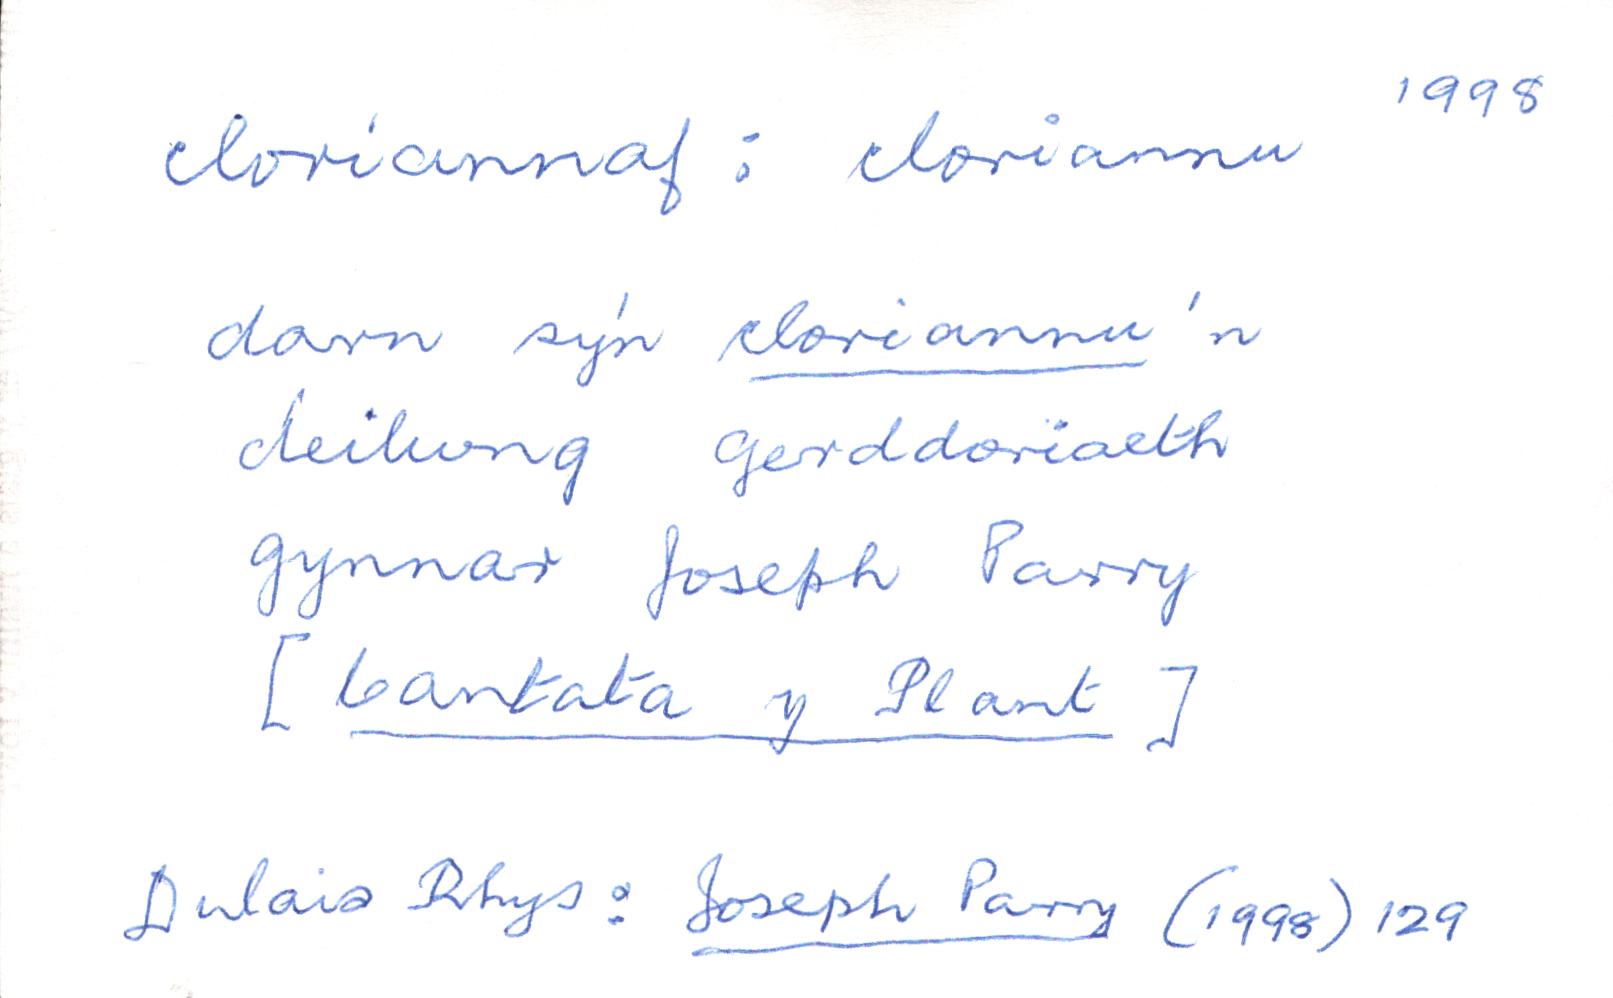 1998
cloriannaf : cloriannu
darn sy'n cloriannu'n
deilwng gerddoriaeth
gynnar Joseph Parry
[Cantata y Plant]
Dulais Rhys : Joseph Parry (1998) 129